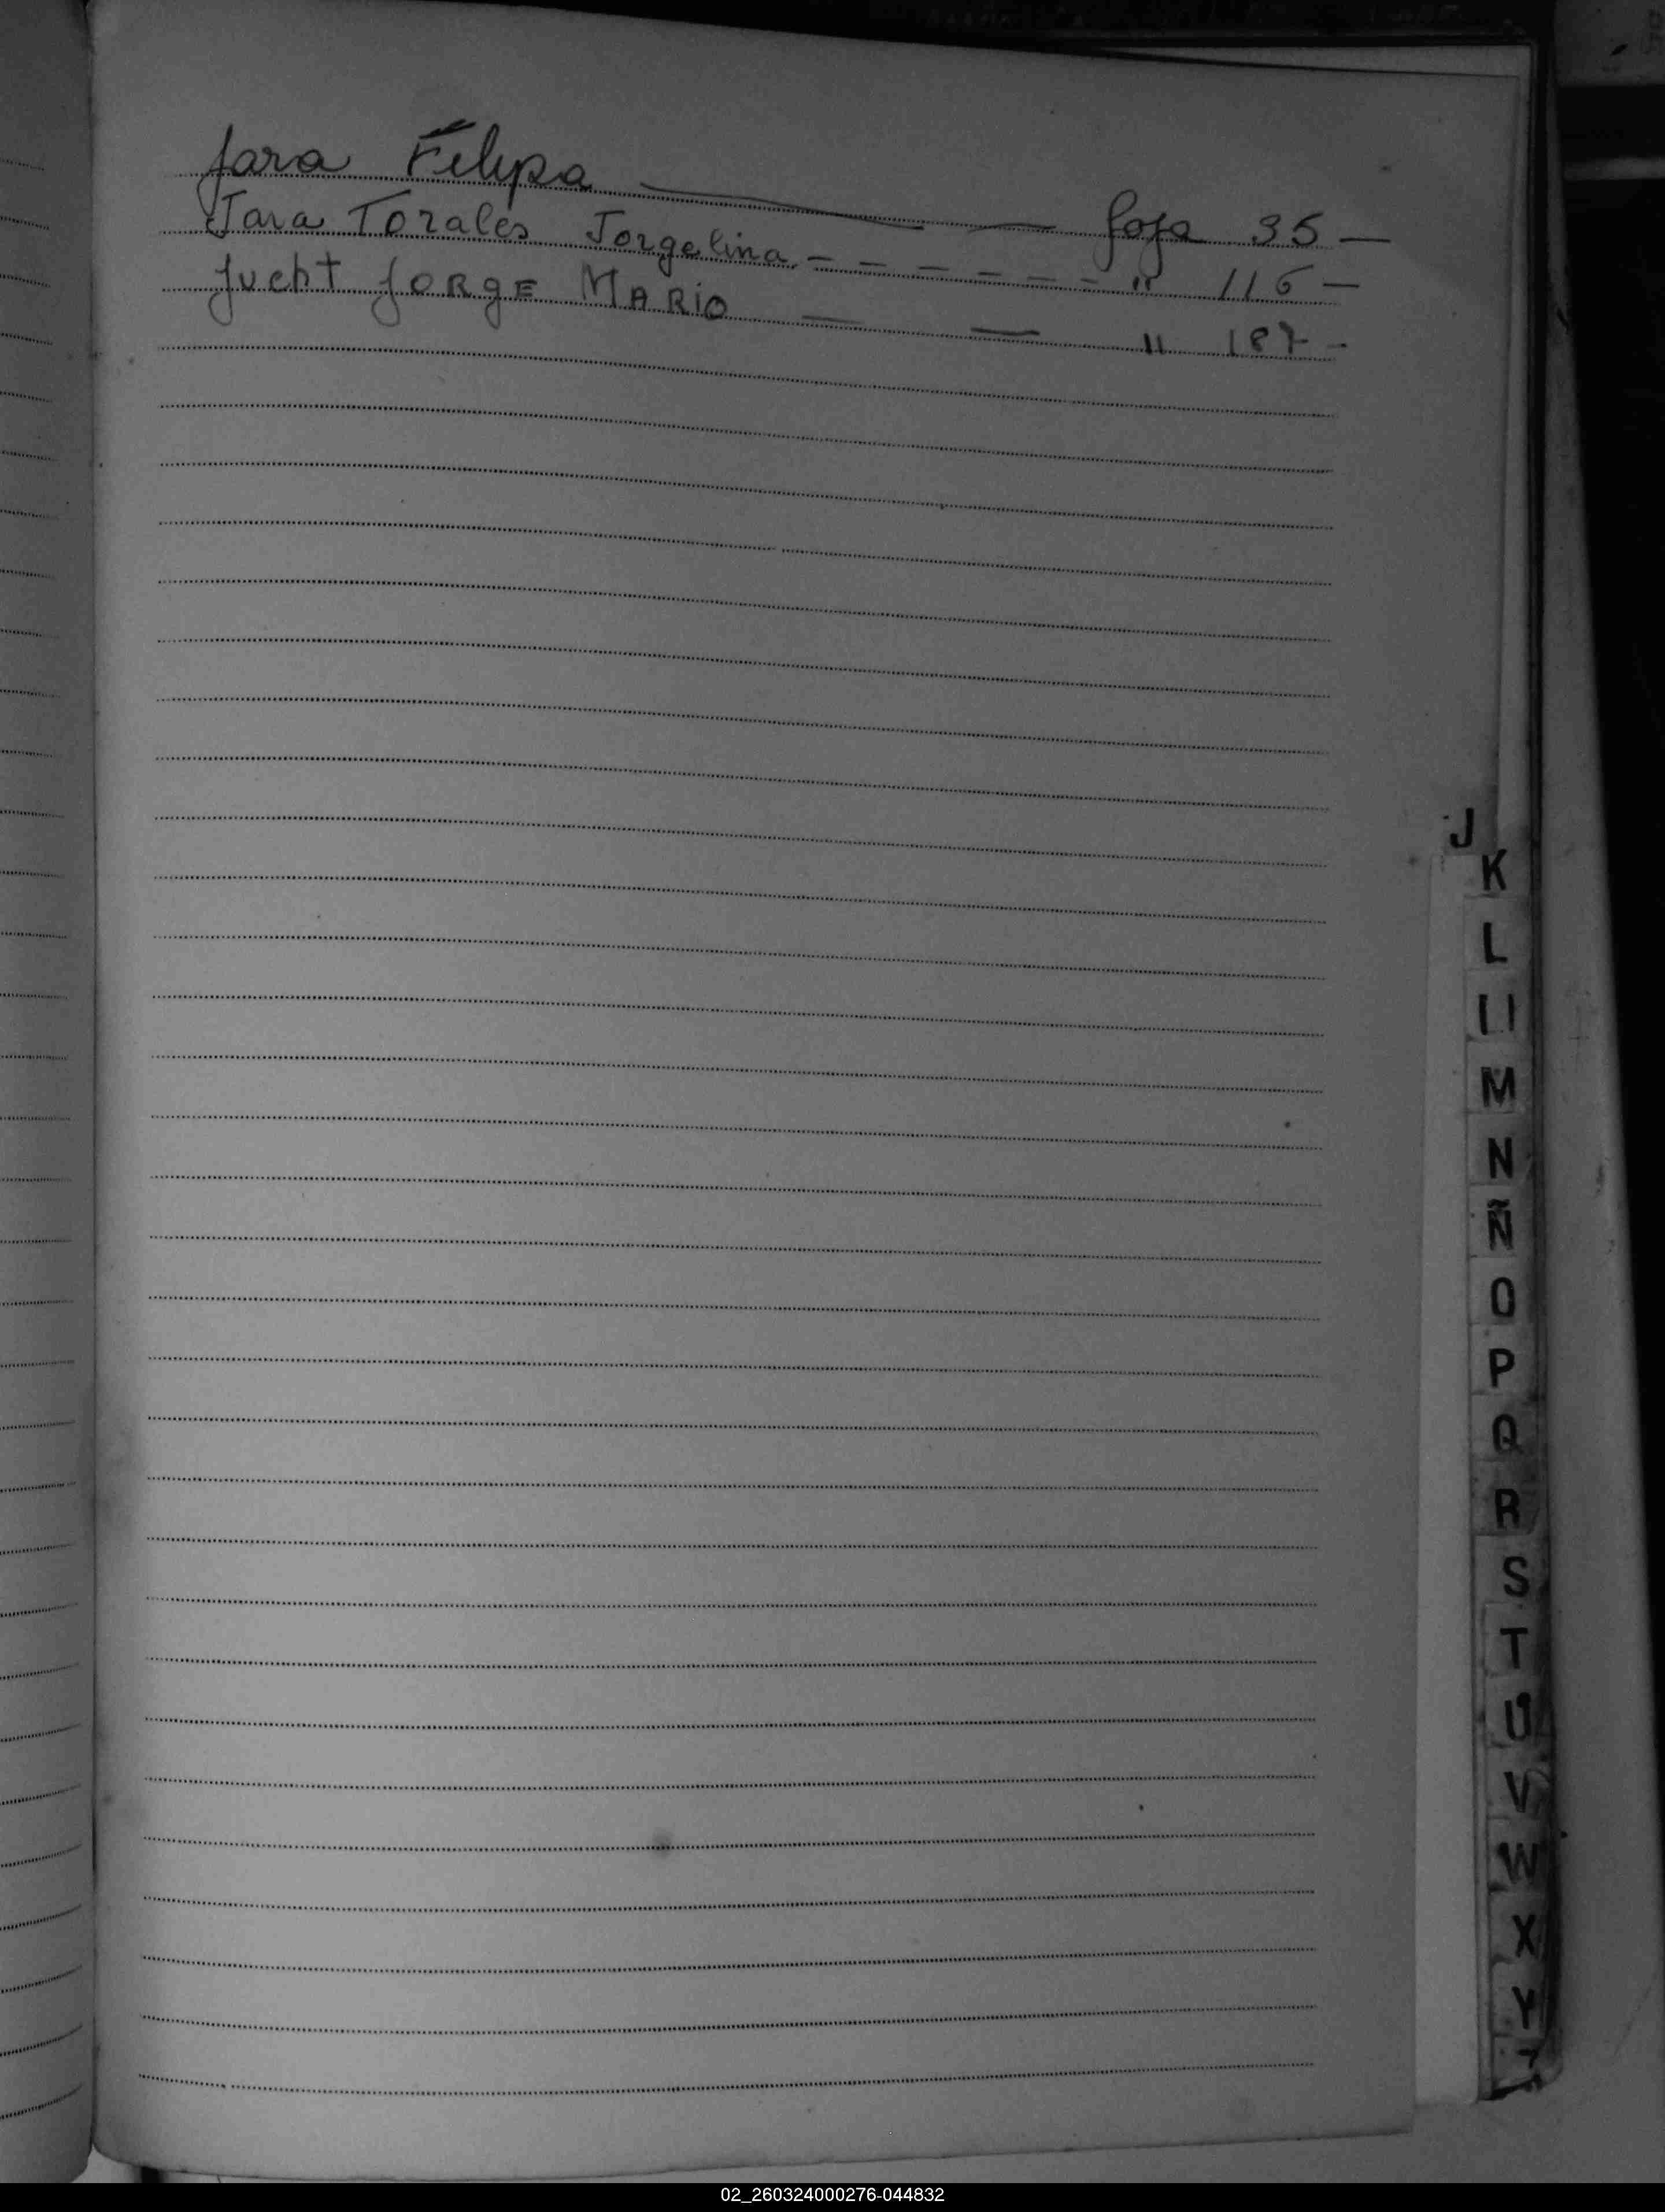 Jara Felipa ——— — foja 35 —
Jara Torales Jorgelina - - - - - - - " 116 —
Jucht JORGE MARIO — — " 187 -
J
K
L
Ll
M
N
Ñ
O
P
Q
R
S
T
U
V
W
X
Y
02_260324000276-044832